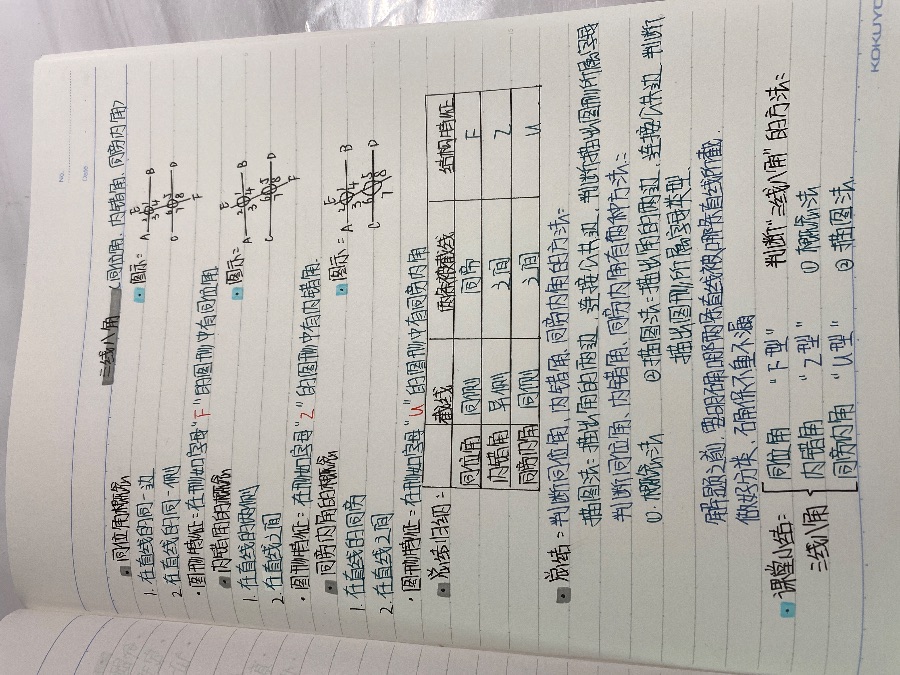 No.
Date
三线八角 (同位角、内错角、同旁内角)
▪ 同位角概念
▪ 图示:
1. 在直线的同一边
2. 在直线的同一侧
· 图形特征:在形如字母"F"的图形中有同位角
▪ 内错角的概念
▪ 图示:
1. 在直线的两侧
2. 在直线之间
· 图形特征:在形如字母"Z"的图形中有内错角.
▪ 同旁内角的概念
▪ 图示:
1. 在直线的同旁
2. 在直线之间
· 图形特征:在形如字母"U"的图形中有同旁内角
▪ 总结归纳:
截线 两条被截线 结构特征
同位角 同侧 同旁 F
内错角 异侧 之间 Z
同旁内角 同侧 之间 U
▪ 总结:判断同位角、内错角、同旁内角的方法:
描图法:描出角的两边,连接公共边,判断描出图形所属字母
判断同位角、内错角、同旁内角有两种方法:
①. 概念法 ②描图法:描出角的两边,连接公共边,判断
描出图形所属字母类型
解题之前,要明确哪两条直线被哪条直线所截.
做好分类,确保不重不漏
▪ 课堂小结: 同位角 "F型" 判断"三线八角"的方法:
三线八角 内错角 "Z型" ①概念法
同旁内角 "U型" ②描图法
KOKUYO